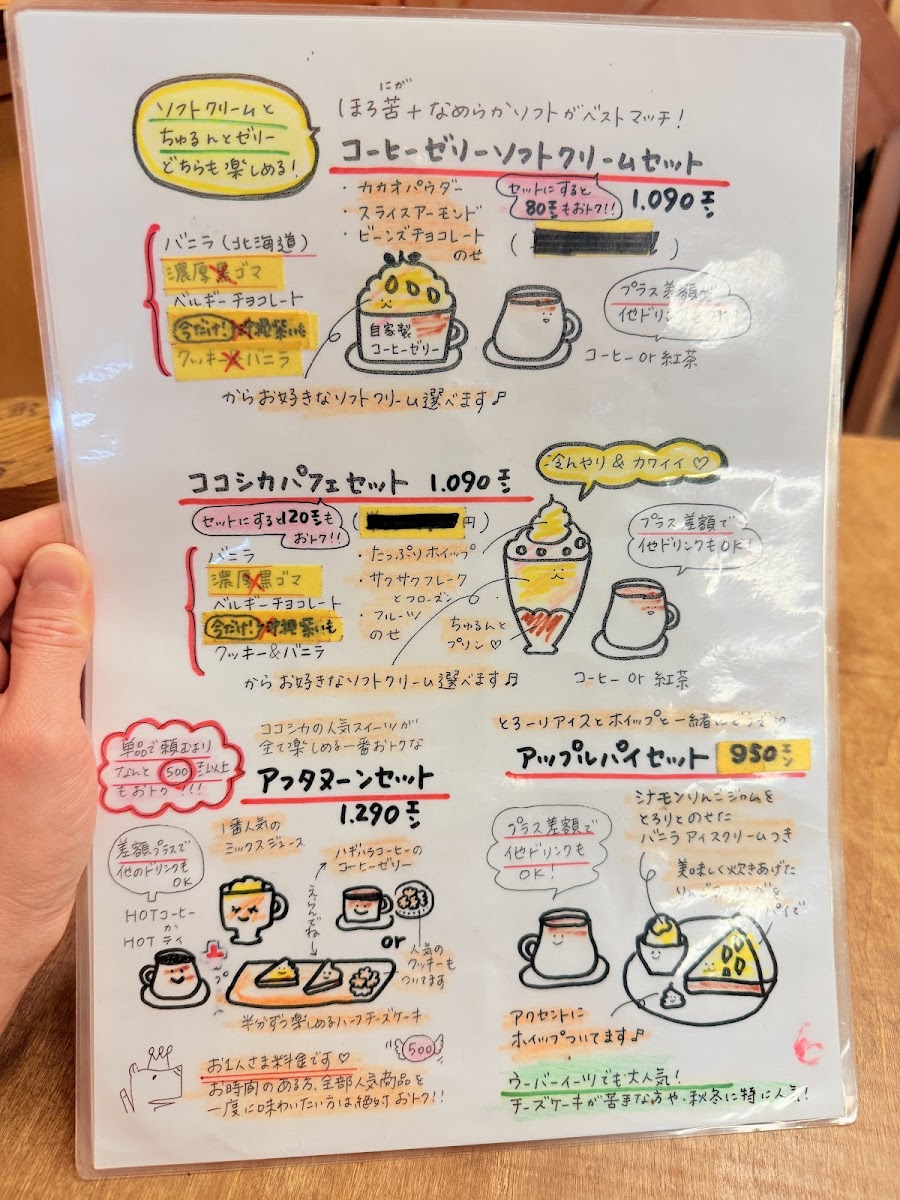 ソフトクリームと
ちゅるんとゼリー
どちらも楽しめる!
にが
ほろ苦+なめらかソフトがベストマッチ!
コーヒーゼリーソフトクリームセット
・カカオパウダー
・スライスアーモンド
・ビーンズチョコレート
のせ
セットにすると
80円もおトク!!
1.090円
バニラ(北海道)
濃厚黒ゴマ
ベルギーチョコレート
今だけ!沖縄紫いも
クッキー バニラ
自家製
コーヒーゼリー
プラス差額で
他ドリンクもOK!
コーヒー or 紅茶
からお好きなソフトクリーム選べます♪
ココシカパフェセット 1.090円
冷んやり & カワイイ♡
セットにすると120円も
おトク!!
円)
バニラ
濃厚黒ゴマ
ベルギーチョコレート
今だけ!沖縄紫いも
クッキー&バニラ
・たっぷりホイップ
・サクサクフレーク
とフローズン
・フルーツ
のせ
ちゅるんと
プリン♡
プラス差額で
他ドリンクもOK!
コーヒー or 紅茶
からお好きなソフトクリーム選べます♬
単品で頼むより
なんと500円以上
もおトク!!!
ココシカの人気スイーツが
全て楽しめる一番おトクな
アフタヌーンセット
1.290円
差額プラスで
他のドリンクも
OK
HOTコーヒー
か
HOTティ
1番人気の
ミックスジュース
ハギハラコーヒーの
コーヒーゼリー
えらんでね
or
人気の
クッキーも
ついてます
半分ずつ楽しめるハーフチーズケーキ
お1人さま料金です♡
500
お時間のある方、全部人気商品を
一度に味わいたい方は絶対おトク!!
とろーりアイスとホイップと一緒に
アップルパイセット 950円
プラス差額で
他ドリンクも
OK!
シナモンりんごジャムを
とろりとのせた
バニラアイスクリームつき
美味しく炊きあげた
パイで
アクセントに
ホイップついてます♪
ウーバーイーツでも大人気!
チーズケーキが苦手な方や、秋冬に特に人気!